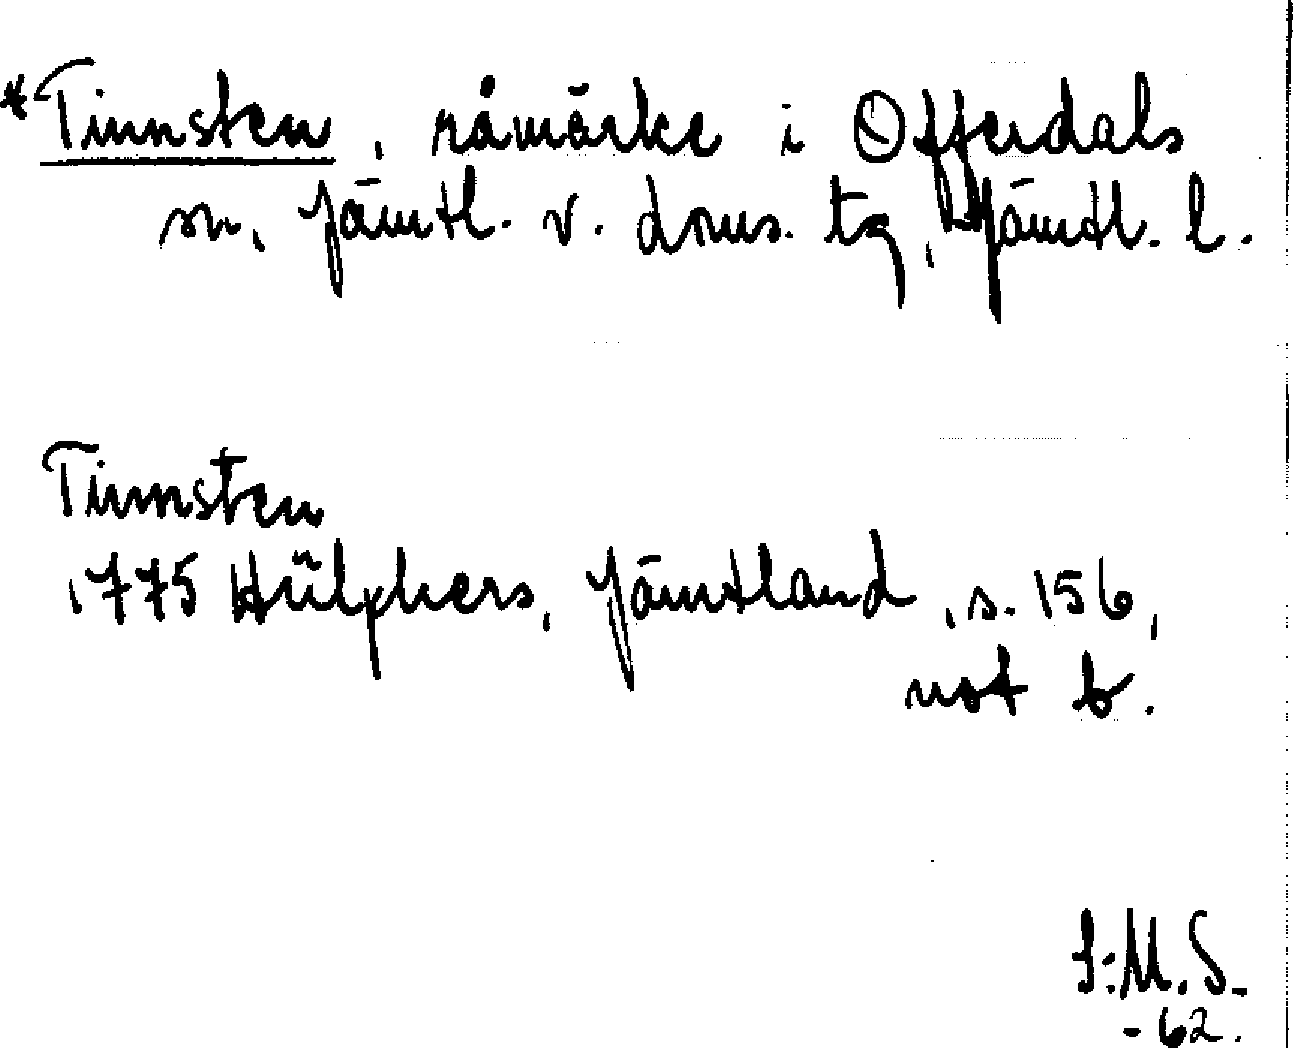 *Tinnsten, råmärke i Offerdals
sn, Jämtl. v. doms. tg, Jämtl. l.
Tinnsten
1775 Hülphers, Jämtland, s. 156,
not b.
S:M.S.
-62.